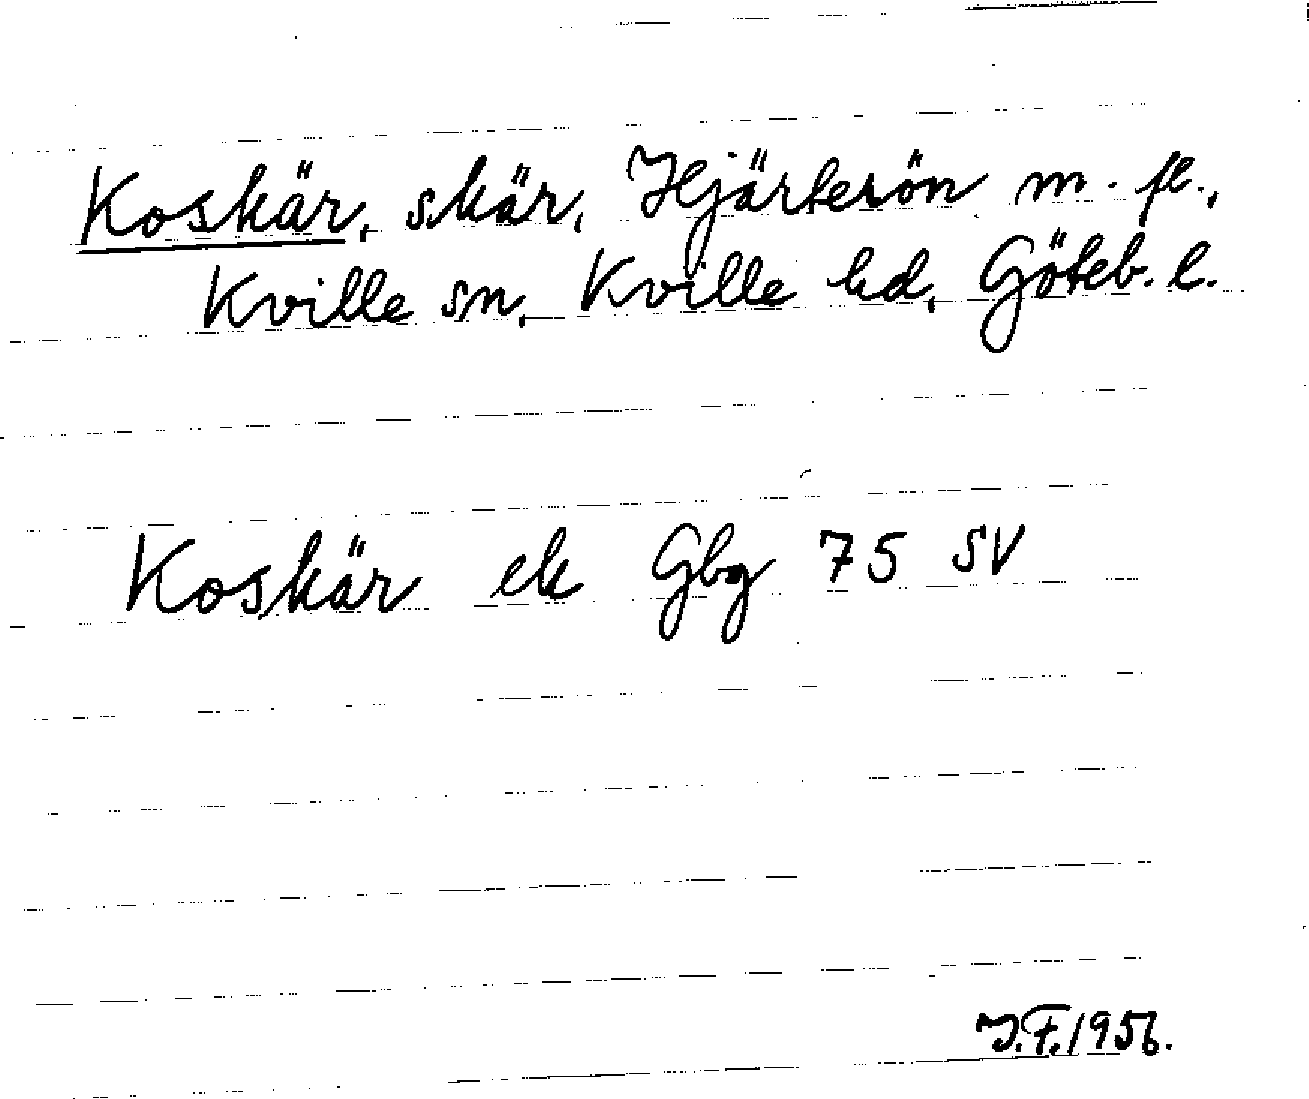 Koskär, skär, Hjärterön m. fl.,
Kville sn, Kville hd, Göteb. l.
Koskär ek Gbg 75 SV
J.F. 1956.